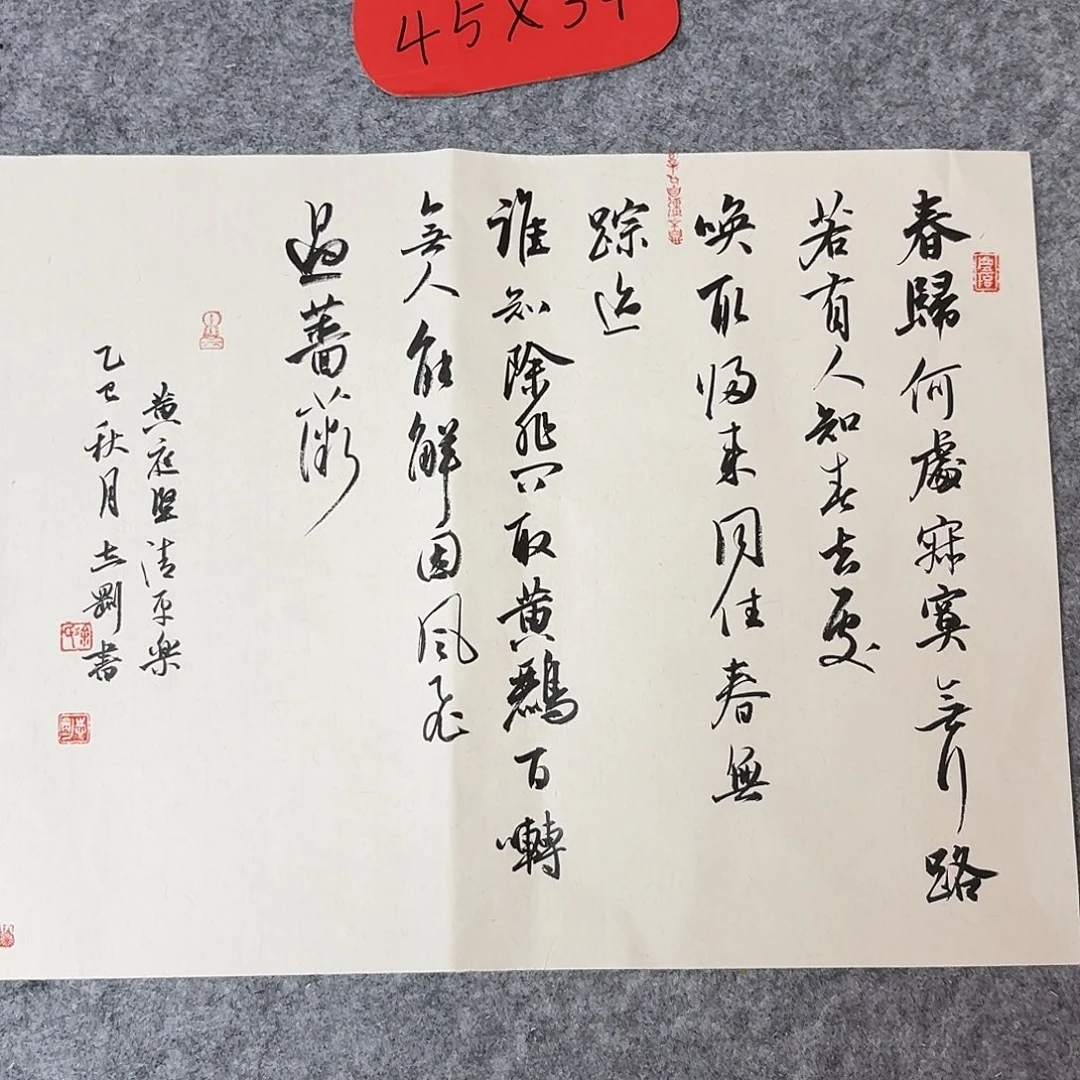 45X34
春歸何處寂寞無行路
若有人知春去處
喚取归来同住春無
踪迹
誰知除非问取黄鸝百囀
無人能解因风飞
過薔薇
黄庭堅清平樂
乙巳秋月志剛書